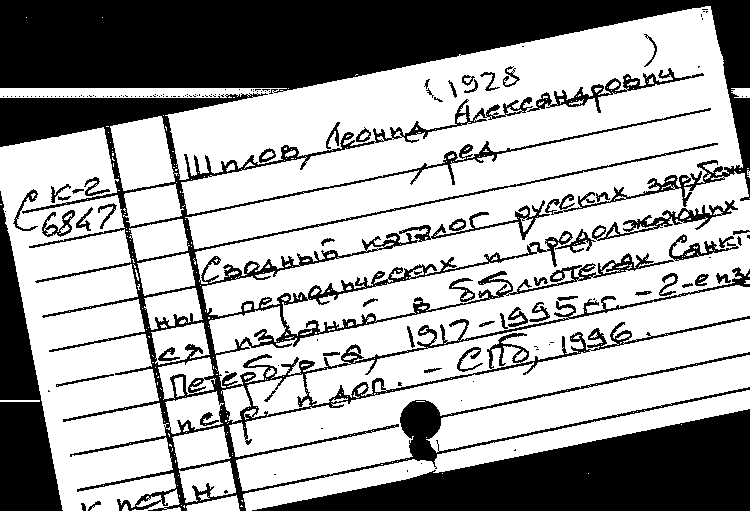 (1928 )
Шилов, Леонид Александрович
, ред.
С К-2
6847
Сводный каталог русских зарубеж-
ных периодических и продолжающих-
ся изданий в библиотеках Санкт-
Петербурга, 1917-1995 гг. - 2-е изд.
испр. и доп. - СПб, 1996.
н.